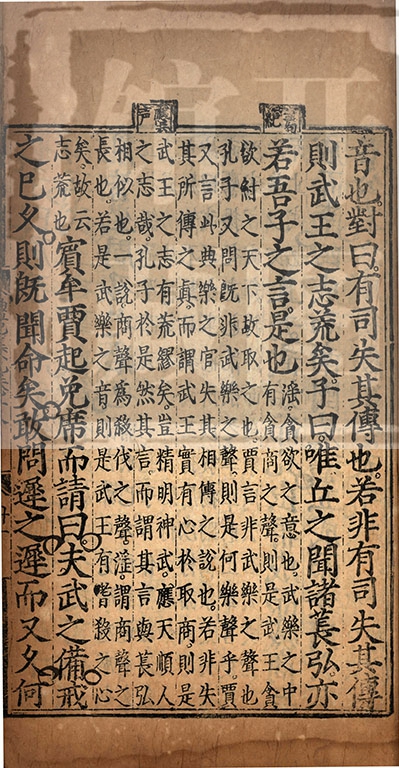 音也。對曰。有司失其傳也。若非有司失其傳
則武王之志荒矣。子曰。唯丘之聞諸萇弘。亦
若吾子之言。是也
淫。貪欲之意也。武樂之中
有貪商之聲。則是武王貪
欲紂之天下。故取之也。賈言非武樂之聲也
孔子又問既非武樂之聲。則是何樂聲乎。賈
又言此典樂之官失其相傳之說也。若非失
其所傳之真。而謂武王實有心於取商。則是
武王之志有荒繆矣。豈精明神武。應天順人
之志哉。孔子於是然其言。而謂其言與萇弘
相似也。一說商聲爲殺伐之聲。淫。謂商聲之
長也。若是武樂之音。則是武王有嗜殺之心
矣。故云
志荒也
賓牟賈起。免席而請曰。夫武之備戒
之巳久。則既聞命矣。敢問遲之遲而又久。何